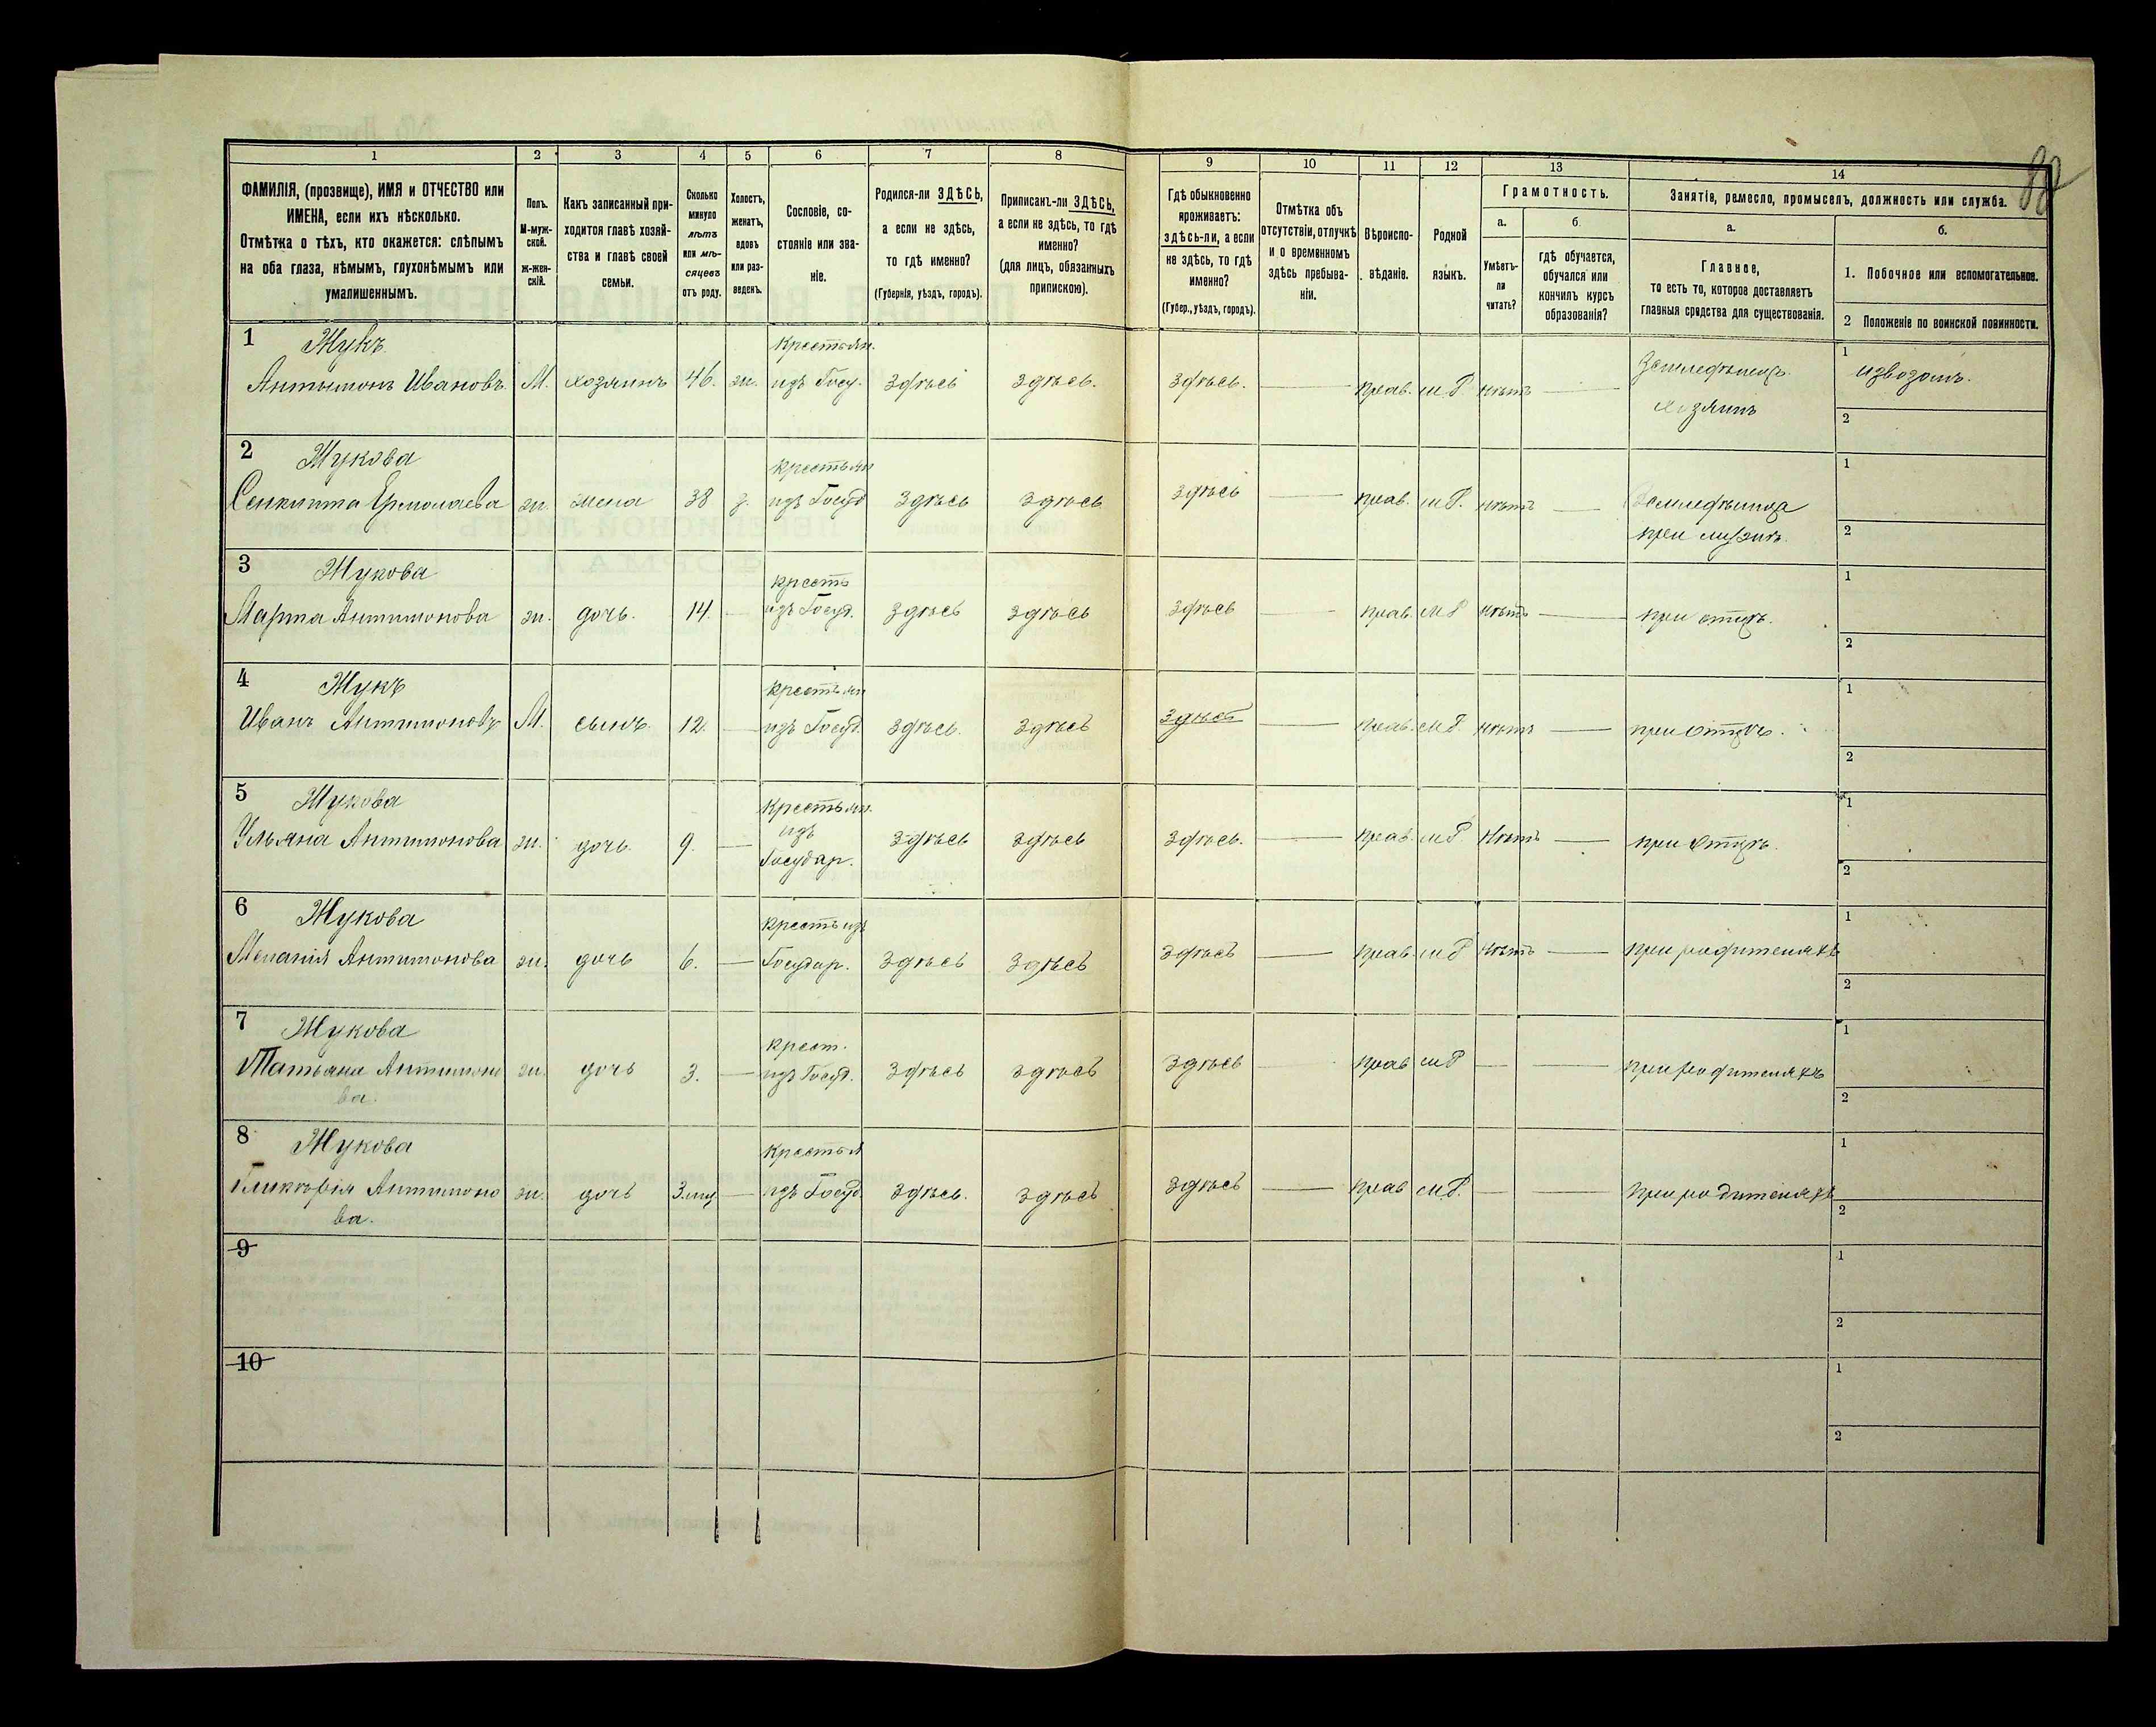 1 2 3 4 5 6 7 8 9 10 11 12 13 14
ФАМИЛІЯ, (прозвище), ИМЯ и ОТЧЕСТВО или
ИМЕНА, если ихъ нѣсколько.
Отмѣтка о тѣхъ, кто окажется: слѣпымъ
на оба глаза, нѣмымъ, глухонѣмымъ или
умалишеннымъ.
Полъ.
М-муж-
ской.
ж-жен-
скій.
Какъ записанный при-
ходится главѣ хозяй-
ства и главѣ своей
семьи.
Сколько
минуло
лѣтъ
или мѣ-
сяцевъ
отъ роду.
Холостъ,
женатъ,
вдовъ
или раз-
веденъ.
Сословіе, со-
стояніе или зва-
ніе.
Родился-ли ЗДѢСЬ,
а если не здѣсь,
то гдѣ именно?
(Губернія, уѣздъ, городъ).
Приписанъ-ли ЗДѢСЬ,
а если не здѣсь, то гдѣ
именно?
(для лицъ, обязанныхъ
припискою).
Гдѣ обыкновенно
проживаетъ:
здѣсь-ли, а если
не здѣсь, то гдѣ
именно?
(Губер., уѣздъ, городъ).
Отмѣтка объ
отсутствіи, отлучкѣ
и о временномъ
здѣсь пребыва-
ніи.
Вѣроиспо-
вѣданіе.
Родной
языкъ.
Грамотность.
а.
Умѣетъ-
ли
читать?
б.
гдѣ обучается,
обучался или
кончилъ курсъ
образованія?
Занятіе, ремесло, промыселъ, должность или служба.
а.
Главное,
то есть то, которое доставляетъ
главныя средства для существованія.
б.
1. Побочное или вспомогательное.
2 Положеніе по воинской повинности.
88
1 Жукъ
Антимонъ Ивановъ М. хозяинъ 46. ж. Крестьян. изъ Госу. здѣсь здѣсь. здѣсь. — прав. м.Р. нѣтъ — Земледѣлецъ хозяинъ 1 извозомъ. 2
2 Жукова
Ермолаева ж. жена 38 з. крестьян изъ Госуд здѣсь здѣсь здѣсь — прав. м.Р. нѣтъ — Земледѣлица при 1 2
3 Жукова
Марта Антимонова ж. дочь. 14. — кресть изъ Госуд. здѣсь здѣсь здѣсь — прав. М Р нѣтъ — при отцѣ. 1 2
4 Жукъ
Иванъ Антимоновъ М. сынъ. 12. — крестьян изъ Госуд. здѣсь. здѣсь здѣсь — прав. м.Р. нѣтъ — при отцѣ. 1 2
5 Жукова
Ульяна Антимонова ж. дочь. 9. — Крестьян. изъ Государ. здѣсь здѣсь здѣсь. — прав. м.Р. Нѣтъ — при отцѣ. 1 2
6 Жукова
Меланія Антимонова ж. дочь 6. — кресть изъ Государ. здѣсь здѣсь здѣсь — прав. м.Р нѣтъ — при родителяхъ 1 2
7 Жукова
Татьяна Антимоно
ва. ж. дочь 3. — крест. изъ Госуд. здѣсь здѣсь здѣсь — прав м.Р — — при родителяхъ 1 2
8 Жукова
Гликерія Антимоно
ва. ж. дочь 3. крестья изъ Госуд здѣсь. здѣсь здѣсь — прав м.Р. — — при родителяхъ 1 2
9 1 2
10 1 2